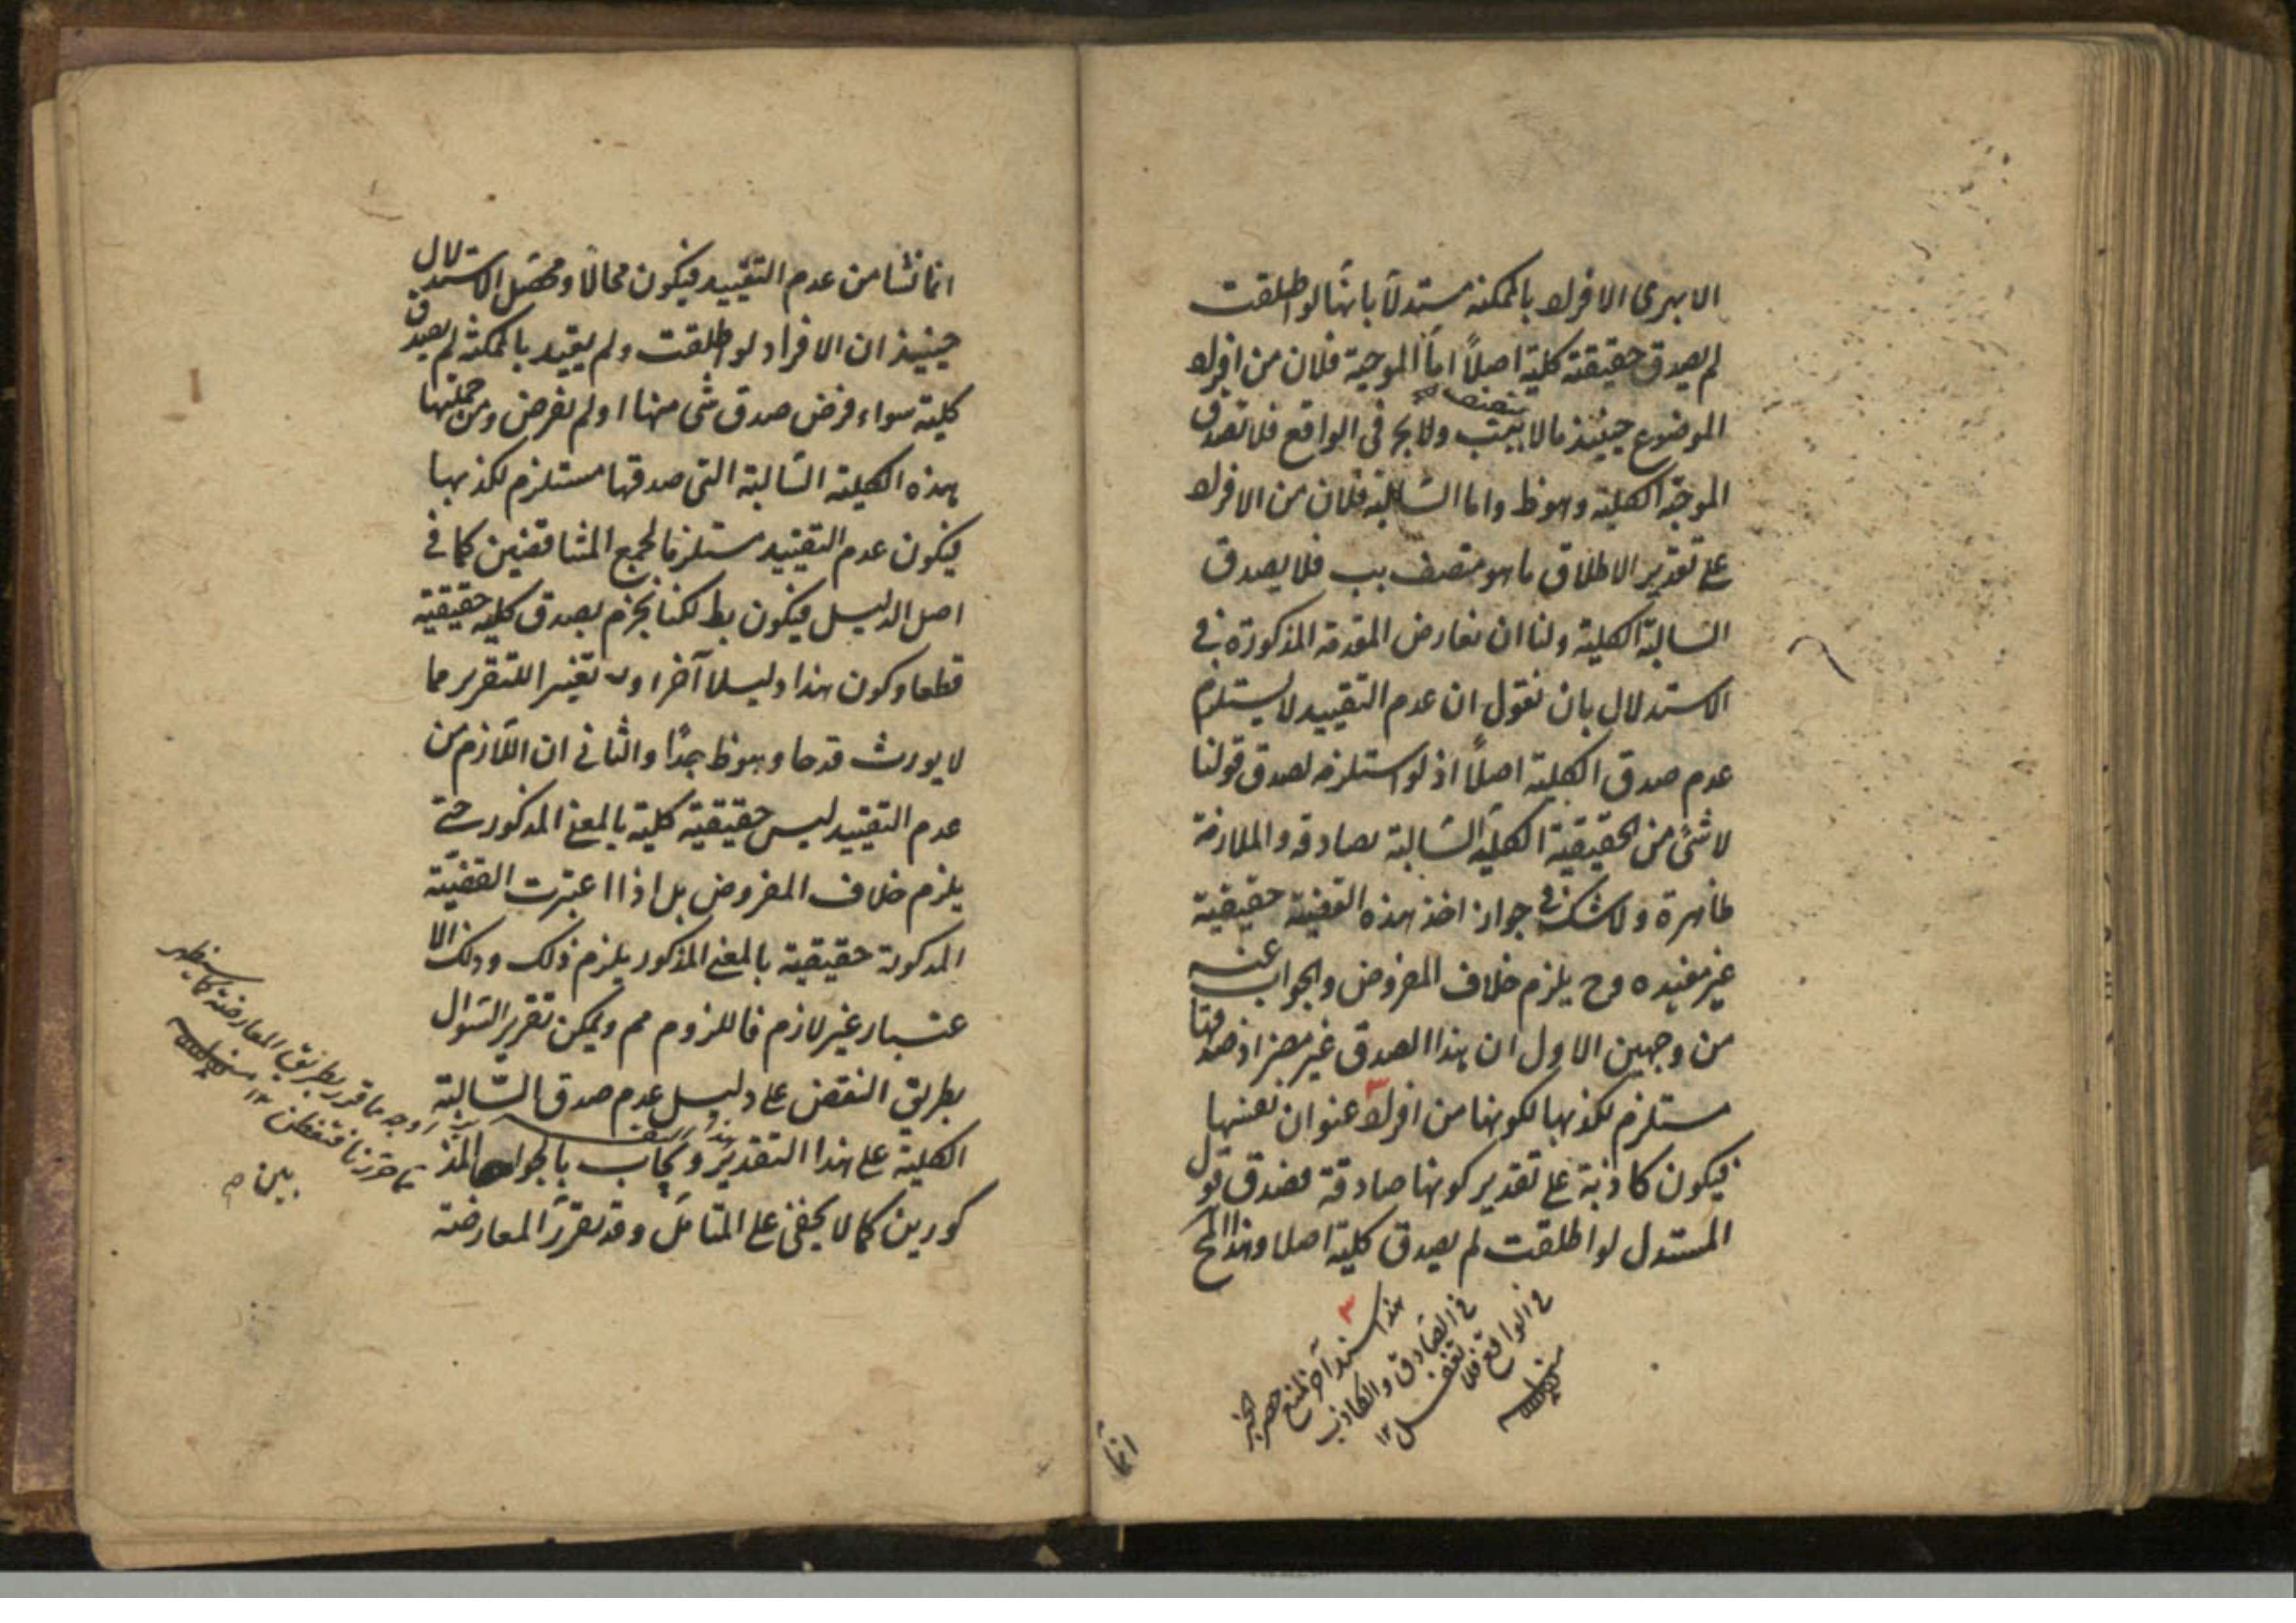 الابهرى الافراد بالممكنة مستدلاً بانها لو اطلقت
لم يصدق حقيقة كلية اصلاً اما الموجبة فلان من افراد
الموضوع حينئذ ما لا يتصف بب ولا بج فى الواقع فلا تصدق
الموجبة الكلية وهو ظ واما السالبة فلان من الافراد
على تقدير الاطلاق ما هو متصف بب فلا يصدق
السالبة الكلية ولنا ان نعارض المقدمة المذكورة فى
الاستدلال بان نقول ان عدم التقييد لا يستلزم
عدم صدق الكلية اصلاً اذ لو استلزم لصدق قولنا
لا شئ من الحقيقية الكلية السالبة بصادقة والملازمة
ظاهرة ولا شك فى جواز اخذ هذه القضية حقيقية
غير مقيده وح يلزم خلاف المفروض والجواب عنه
من وجهين الاول ان هذا الصدق غير مضر اذ صدقها
مستلزم لكذبها لكونها من افراد ٣ عنوان نفسها
فيكون كاذبة على تقدير كونها صادقة فصدق قول
المستدل لو اطلقت لم يصدق كلية اصلا وهذا المح
٣
هذا سند آخر لمنع حصر الخبر
فى الصادق والكاذب
فى الواقع فلا تغفل ١٢
انما
انما نشا من عدم التقييد فيكون محالاً ومحصل الاستدلال
حينئذ ان الافراد لو اطلقت ولم يقيد بالممكنة لم يصدق
كلية سواء فرض صدق شئ منها او لم نفرض ومن جملتها
هذه الكلية السالبة التى صدقها مستلزم لكذبها
فيكون عدم التقييد مستلزما لجمع المتناقضين كما فى
اصل الدليل فيكون بط لكنا نجزم بصدق كلية حقيقية
قطعا وكون هذا دليلا آخر او تغييرا للتقرير مما
لا يورث قدحا وهو ظ جدًا والثانى ان اللازم من
عدم التقييد ليس حقيقية كلية بالمعنى المذكور حتى
يلزم خلاف المفروض بل اذا اعتبرت القضية
المذكورة حقيقية بالمعنى المذكور يلزم ذلك وذلك الا
عتبار غير لازم فاللزوم مم ويمكن تقرير السؤال
بطريق النقض على دليل عدم صدق السالبة
الكلية على هذا التقدير ويجاب بالجوابين المذ
كورين كما لا يخفى على المتأمل وقد تقرر المعارضة
اوجه ما قرر بطريق المعارضة كما سيظهر
مما حررنا فتفطن ١٢